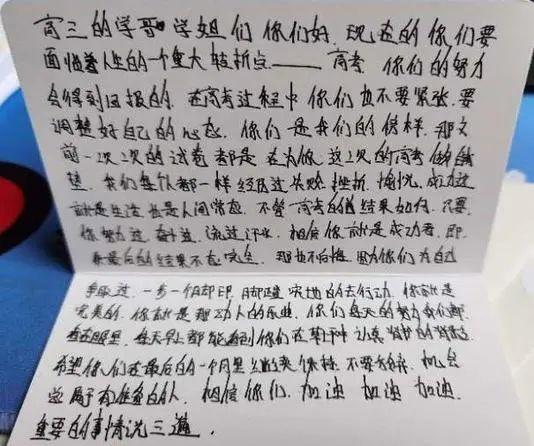 高三的学哥学姐们你们好，现在的你们要
面临着人生的一个重大转折点——高考，你们的努力
会得到回报的，在高考过程中你们也不要紧张，要
调整好自己的心态，你们是我们的榜样，那之
前一次次的试卷都是在为你这次的高考做铺
垫，我们每个人都一样经历过失败，挫折，惋惜，成功这
就是生活，也是人间常态，不管高考的结果如何，只要
你努力过，奋斗过，流过汗水，相信你就是成功者，即
使最后的结果不太完美，那也不后悔，因为你们为自己
争取过，一步一个脚印，脚踏实地的去行动，你就是
完美的，你就是那动人的乐曲，你们每天的努力我们都
看在眼里，每天早上都能看到你们在认真
希望你们在最后的一个月里保持，不要放弃，机会
总属于有准备的人，相信你们，加油 加油 加油，
重要的事情说三遍。